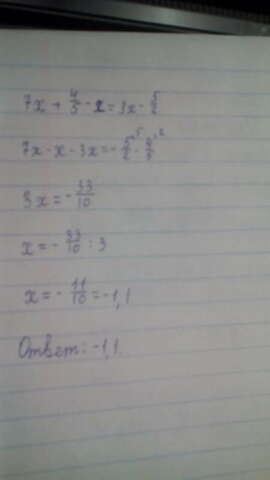 7x + 4/5 - x = 3x - 5/2
7x - x - 3x = - 5/2^5 - 4/5^2
3x = - 33/10
x = - 33/10 : 3
x = - 11/10 = -1,1
Ответ: -1,1.